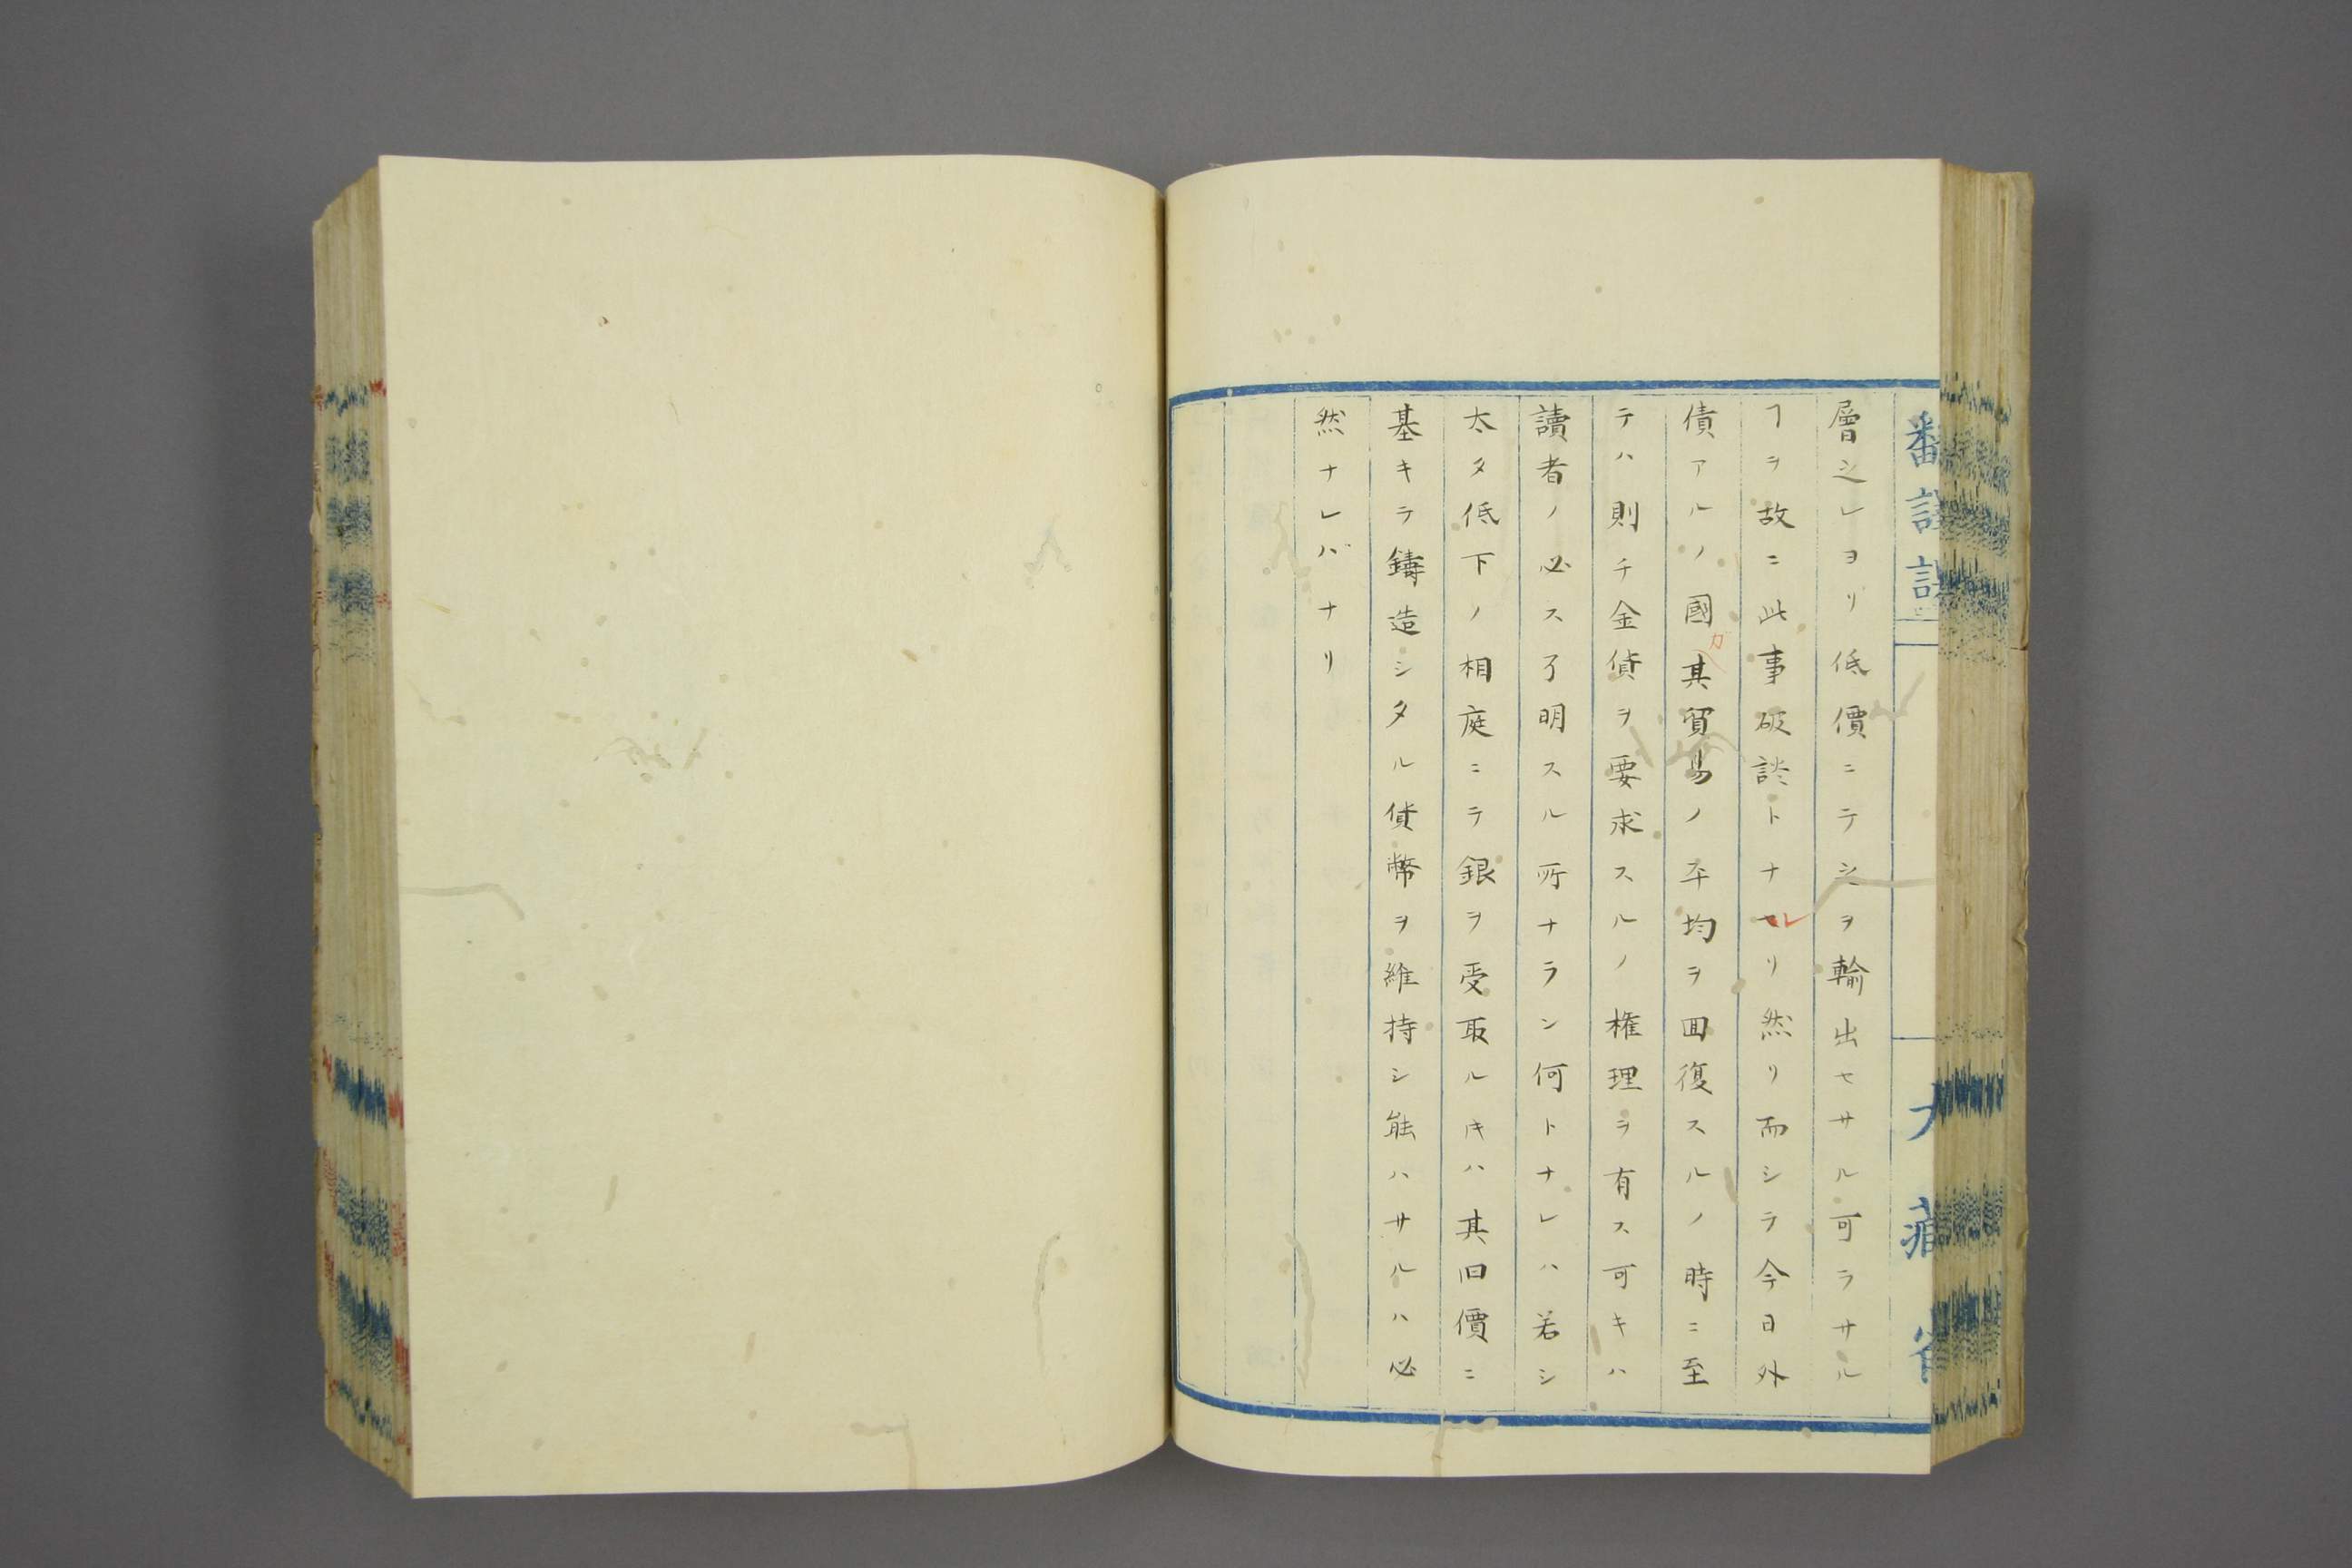 層之レヨリ低價ニテ之ヲ輸出セサル可ラサル
ヿヲ故ニ此事破談トナレリ然リ而シテ今日外
債アルノ國ガ其貿易ノ平均ヲ回復スルノ時ニ至
テハ則チ金貨ヲ要求スルノ権理ヲ有ス可キハ
讀者ノ必ス了明スル所ナラン何トナレハ若シ
太タ低下ノ相庭ニテ銀ヲ受取ルキハ其旧價ニ
基キテ鑄造シタル貨幣ヲ維持シ能ハサルハ必
然ナレバナリ
大藏省